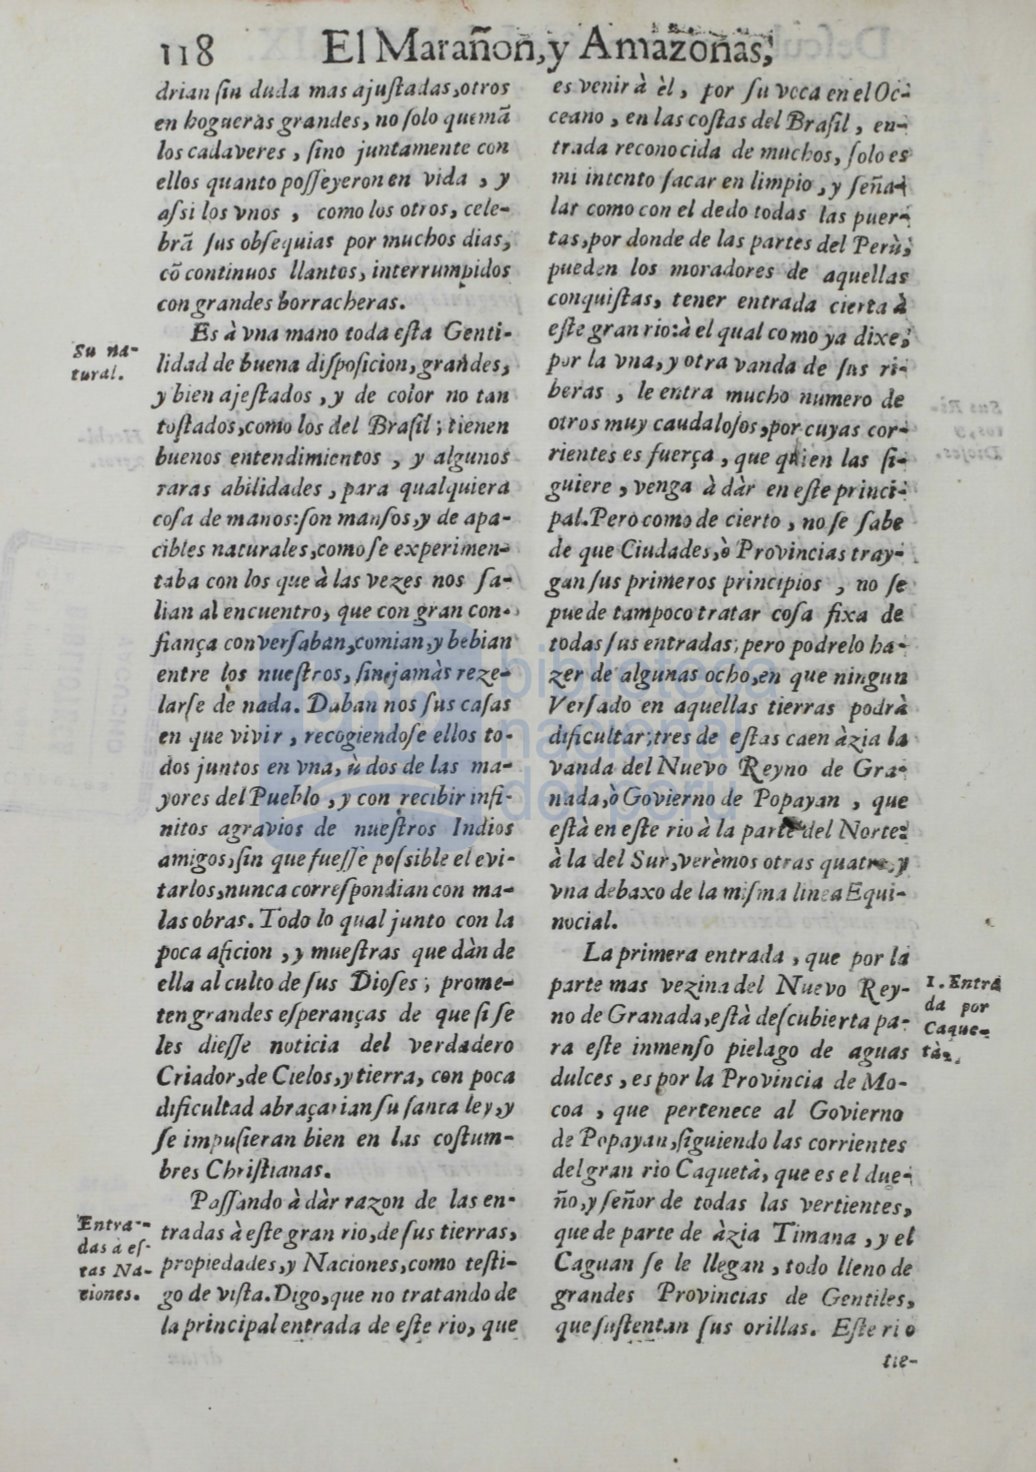 118 El Marañon, y Amazonas,
drian ſin duda mas ajuſtadas, otros
en hogueras grandes, no ſolo quemã
los cadaveres, ſino juntamente con
ellos quanto poſſeyeron en vida, y
aſsi los vnos, como los otros, cele-
brã ſus obſequias por muchos dias,
cõ continuos llantos, interrumpidos
con grandes borracheras.
Es à vna mano toda eſta Genti-
lidad de buena diſpoſicion, grandes,
y bien ajeſtados, y de color no tan
toſtados, como los del Braſil; tienen
buenos entendimientos, y algunos
raras abilidades, para qualquiera
coſa de manos: ſon manſos, y de apa-
cibles naturales, como ſe experimen-
taba con los que à las vezes nos ſa-
lian al encuentro, que con gran con-
fiança converſaban, comian, y bebian
entre los nueſtros, ſin jamàs reze-
larſe de nada. Daban nos ſus caſas
en que vivir, recogiendoſe ellos to-
dos juntos en vna, ù dos de las ma-
yores del Pueblo, y con recibir infi-
nitos agravios de nueſtros Indios
amigos, ſin que fueſſe poſsible el evi-
tarlos, nunca correſpondian con ma-
las obras. Todo lo qual junto con la
poca aficion, y mueſtras que dàn de
ella al culto de ſus Dioſes; prome-
ten grandes eſperanças de que ſi ſe
les dieſſe noticia del verdadero
Criador, de Cielos, y tierra, con poca
dificultad abraçarian ſu ſanta ley, y
ſe impuſieran bien en las coſtum-
bres Chriſtianas.
Paſſando à dàr razon de las en-
tradas à eſte gran rio, de ſus tierras,
propiedades, y Naciones, como teſti-
go de viſta. Digo, que no tratando de
la principal entrada de eſte rio, que
Su na-
tural.
Entra-
das a eſ-
tas Na-
ciones.
es venir à èl, por ſu voca en el Oc-
ceano, en las coſtas del Braſil, en-
trada reconocida de muchos, ſolo es
mi intento ſacar en limpio, y ſeña-
lar como con el dedo todas las puer-
tas, por donde de las partes del Perù,
pueden los moradores de aquellas
conquiſtas, tener entrada cierta à
eſte gran rio: à el qual como ya dixe,
por la vna, y otra vanda de ſus ri-
beras, le entra mucho numero de
otros muy caudaloſos, por cuyas cor-
rientes es fuerça, que quien las ſi-
guiere, venga à dàr en eſte princi-
pal. Pero como de cierto, no ſe ſabe
de que Ciudades, ò Provincias tray-
gan ſus primeros principios, no ſe
puede tampoco tratar coſa fixa de
todas ſus entradas; pero podrelo ha-
zer de algunas ocho, en que ningun
Verſado en aquellas tierras podrà
dificultar; tres de eſtas caen àzia la
vanda del Nuevo Reyno de Gra-
nada, ò Govierno de Popayan, que
eſtà en eſte rio à la parte del Norte:
à la del Sur, verèmos otras quatro, y
vna debaxo de la miſma linea Equi-
nocial.
La primera entrada, que por la
parte mas vezina del Nuevo Rey-
no de Granada, eſtà deſcubierta pa-
ra eſte inmenſo pielago de aguas
dulces, es por la Provincia de Mo-
coa, que pertenece al Govierno
de Popayan, ſiguiendo las corrientes
del gran rio Caquetà, que es el due-
ño, y ſeñor de todas las vertientes,
que de parte de àzia Timana, y el
Caguan ſe le llegan, todo lleno de
grandes Provincias de Gentiles,
que ſuſtentan ſus orillas. Eſte rio
tie-
1. Entra
da por
Caque-
tà.
biblioteca
nacional
del perú